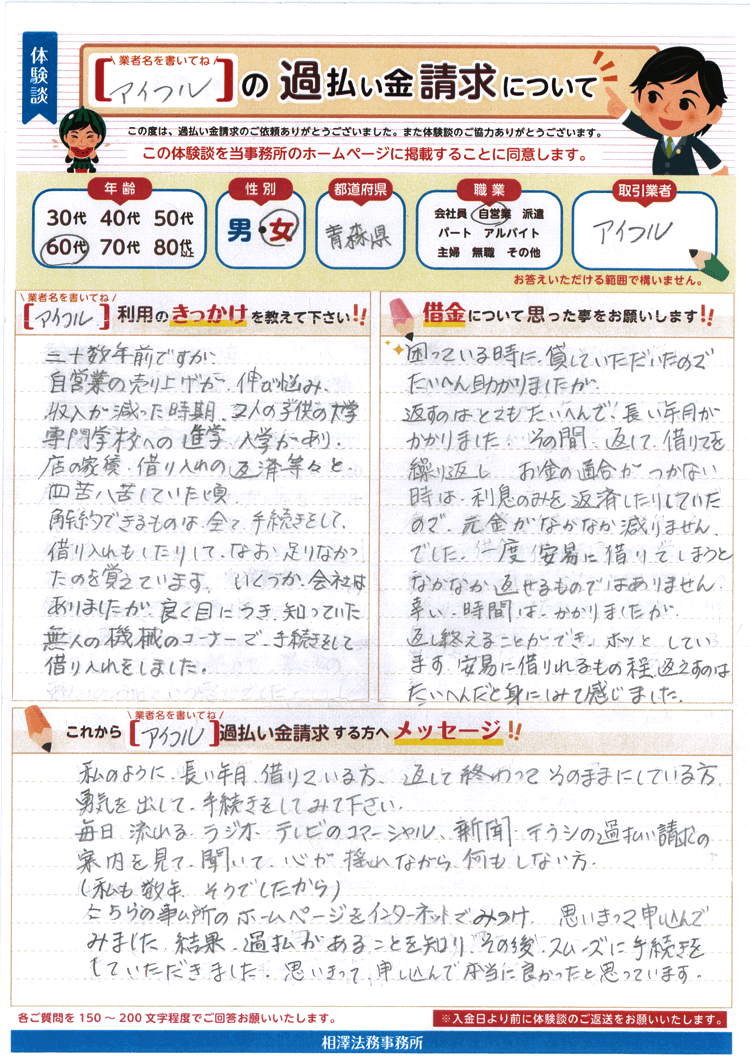 体験談
業者名を書いてね
[アイフル]の過払い金請求について
この度は、過払い金請求のご依頼ありがとうございました。また体験談のご協力ありがとうございます。
この体験談を当事務所のホームページに掲載することに同意します。
年齢
30代 40代 50代
60代 70代 80代以上
性別
男・女
都道府県
青森県
職業
会社員 自営業 派遣
パート アルバイト
主婦 無職 その他
取引業者
アイフル
お答えいただける範囲で構いません。
業者名を書いてね
[アイフル]利用のきっかけを教えて下さい!!
三十数年前ですが、
自営業の売り上げが、伸び悩み、
収入が減った時期、2人の子供の大学
専門学校への進学 入学があり、
店の家積、借り入れの返済等々と、
四苦八苦していた頃
解約できるものは、全て、手続きをして、
借り入れもしたりして、なお、足りなかっ
たのを覚えています。 いくつか、会社は
ありましたが、良く目につき、知っていた
無人の機械のコーナーで、手続きをして
借り入れをしました。
借金について思った事をお願いします!!
困っている時に、貸していただいたので
たいへん助かりましたが、
返すのはとてもたいへんで、長い年月が
かかりました。 その間、返して、借りてを
繰り返し お金の都合がつかない
時は、利息のみを返済したりしていた
ので、元金がなかなか減りません
でした。一度 安易に借りてしまうと
なかなか返せるものではありません。
幸い、時間は、かかりましたが、
返し終えることができ、ホッと してい
ます。安易に借りれるもの程、返えすのは
たいへんだと身にしみて感じました。
業者名を書いてね
これから[アイフル]過払い金請求する方へメッセージ!!
私のように、長い年月、借りている方、返して終わってそのままにしている方、
勇気を出して、手続きをしてみて下さい。
毎日 流れる ラジオ、テレビのコマーシャル、新聞、チラシの過払い請求の
案内を見て、聞いて、心が 揺れながら、何もしない方。
(私も数年 そうでしたから)
こちらの事ム所のホームページをインターネットでみつけ、 思いきって申し込んで
みました。結果、過払があることを知り、その後、スムーズに手続きを
していただきました。思いきって、申し込んで本当に良かったと思っています。
各ご質問を 150 ～ 200 文字程度でご回答お願いいたします。
※入金日より前に体験談のご返送をお願いいたします。
相澤法務事務所